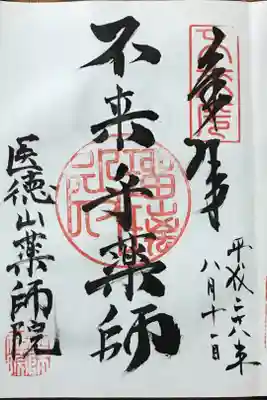 奉拝
平成二十八年
八月十一日
不来乎薬師
医徳山薬師院